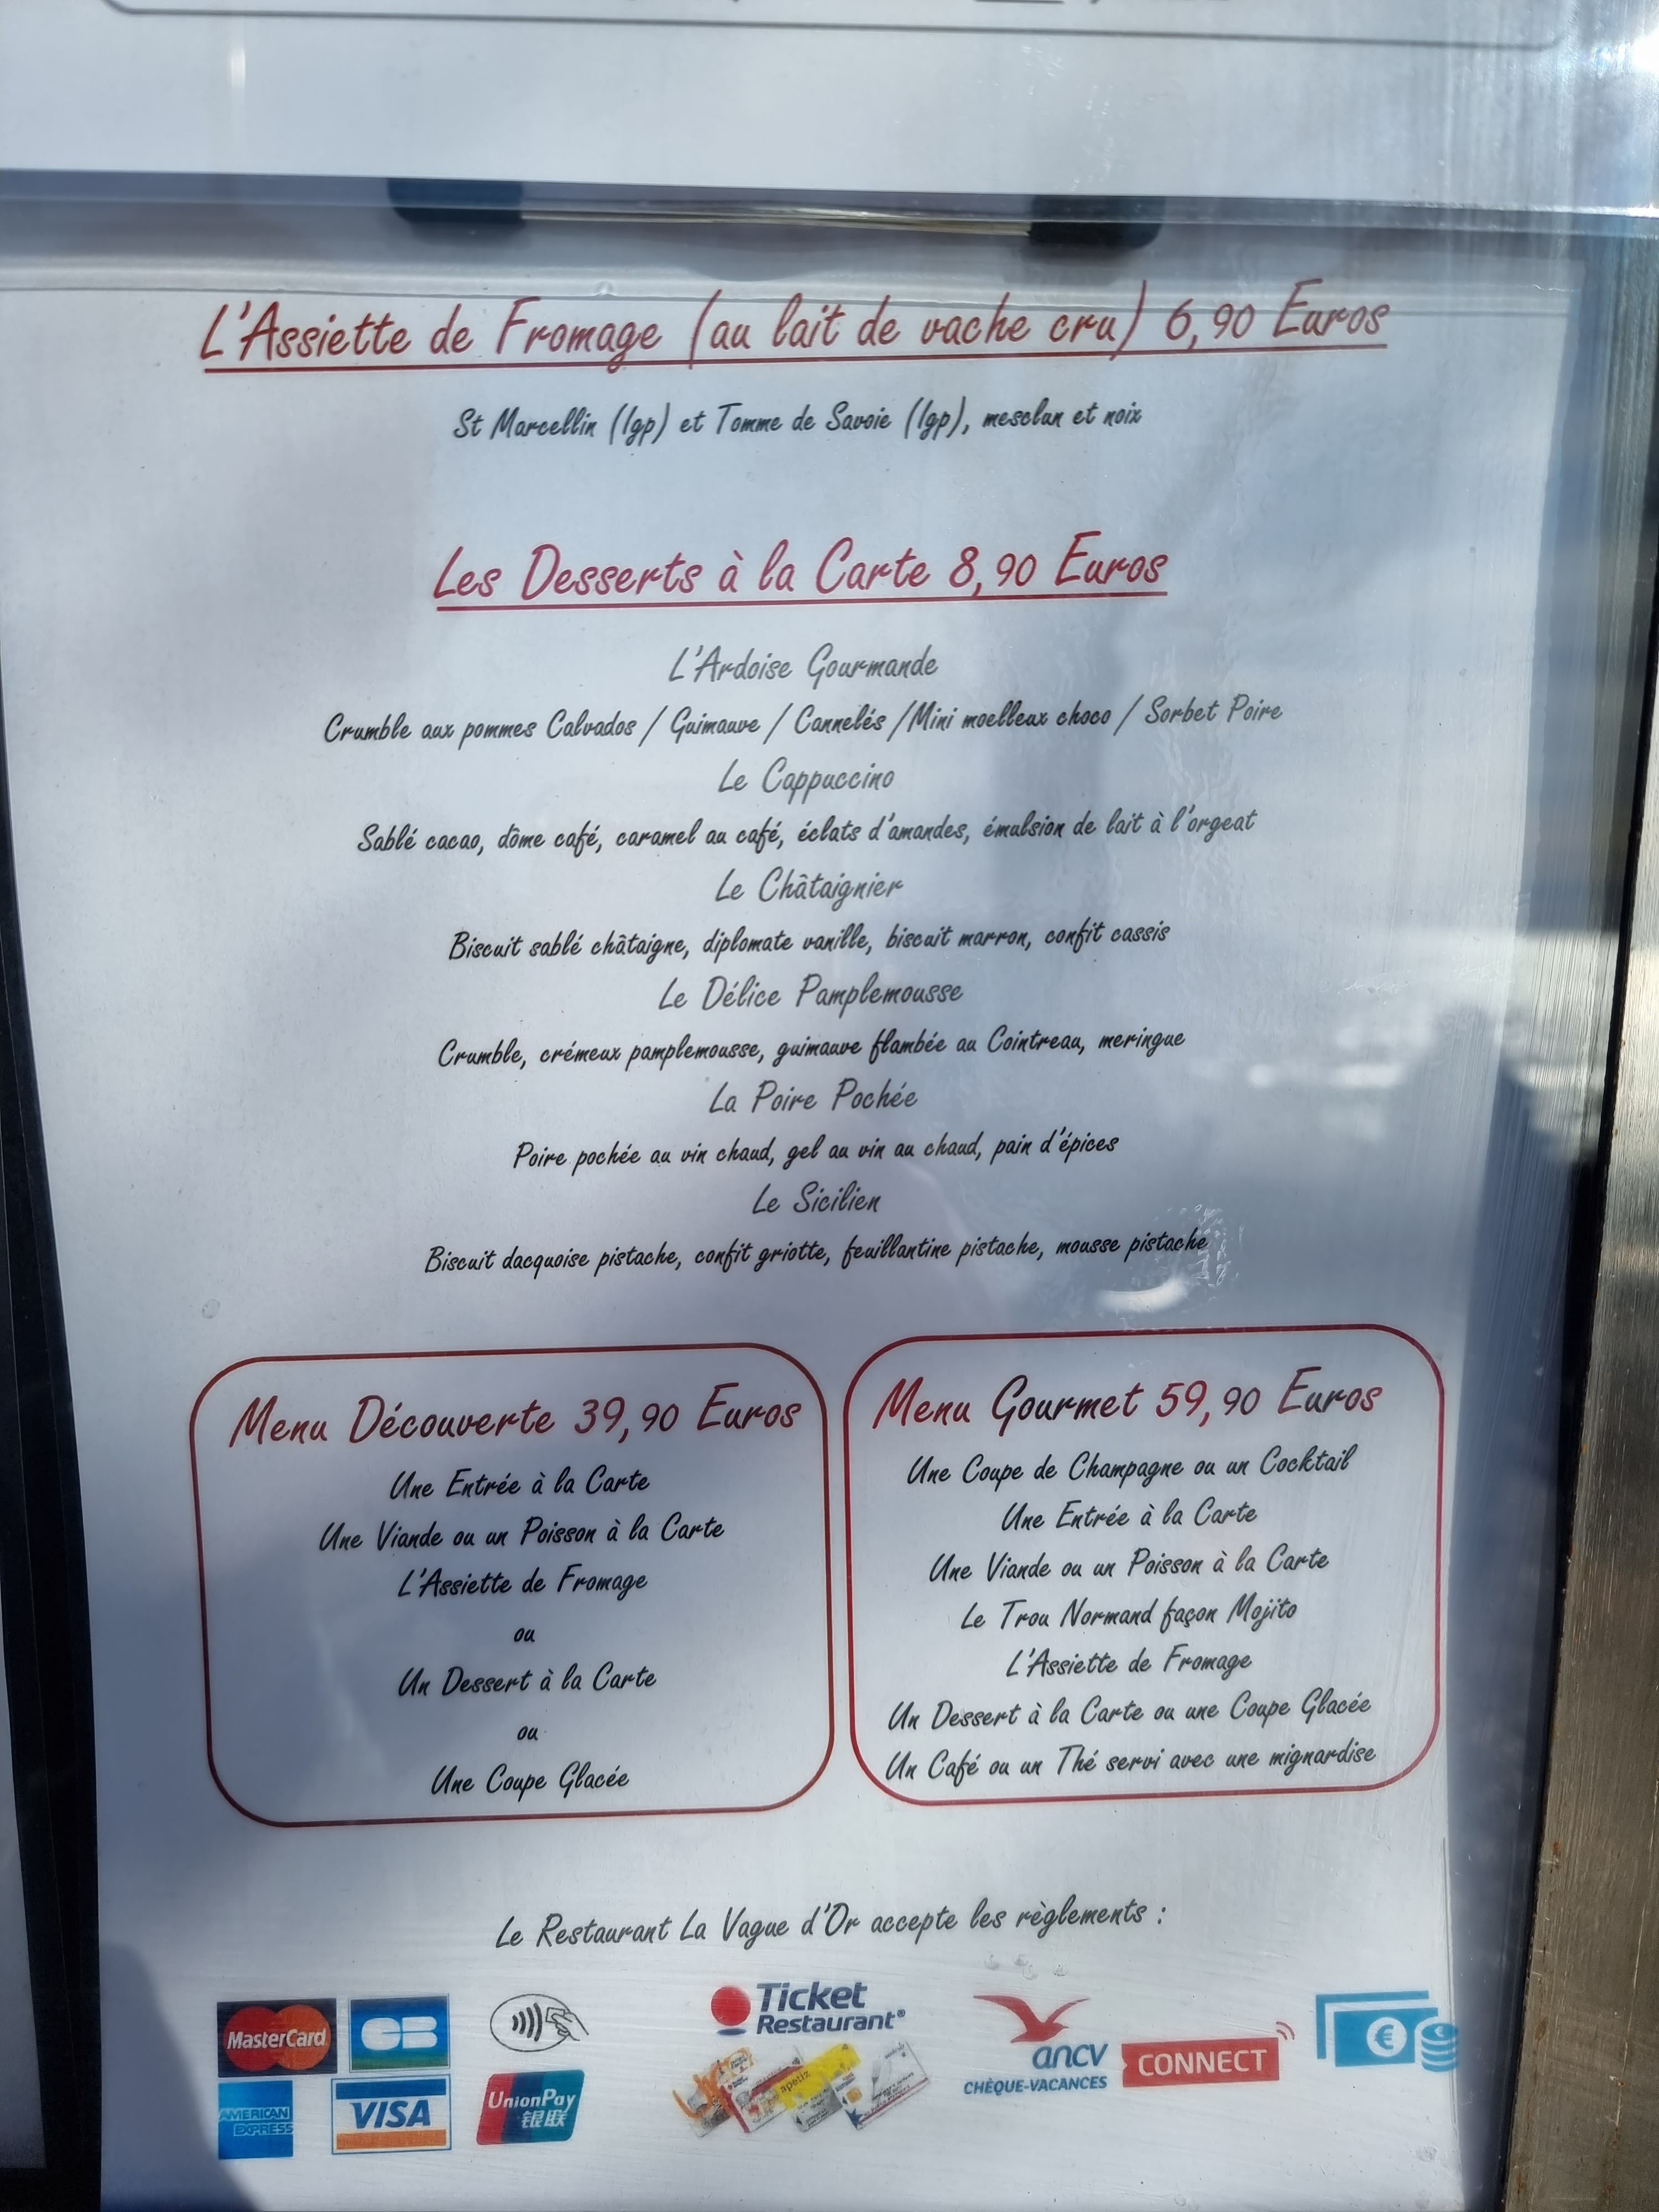 L'Assiette de Fromage (au lait de vache cru) 6,90 Euros
St Marcellin (Igp) et Tomme de Savoie (Igp), mesclun et noix
Les Desserts à la Carte 8,90 Euros
L'Ardoise Gourmande
Crumble aux pommes Calvados / Guimauve / Cannelés /Mini moelleux choco / Sorbet Poire
Le Cappuccino
Sablé cacao, dôme café, caramel au café, éclats d'amandes, émulsion de lait à l'orgeat
Le Châtaignier
Biscuit sablé châtaigne, diplomate vanille, biscuit marron, confit cassis
Le Délice Pamplemousse
Crumble, crémeux pamplemousse, guimauve flambée au Cointreau, meringue
La Poire Pochée
Poire pochée au vin chaud, gel au vin au chaud, pain d'épices
Le Sicilien
Biscuit dacquoise pistache, confit griotte, feuillantine pistache, mousse pistache
Menu Découverte 39,90 Euros
Une Entrée à la Carte
Une Viande ou un Poisson à la Carte
L'Assiette de Fromage
ou
Un Dessert à la Carte
ou
Une Coupe Glacée
Menu Gourmet 59,90 Euros
Une Coupe de Champagne ou un Cocktail
Une Entrée à la Carte
Une Viande ou un Poisson à la Carte
Le Trou Normand façon Mojito
L'Assiette de Fromage
Un Dessert à la Carte ou une Coupe Glacée
Un Café ou un Thé servi avec une mignardise
Le Restaurant La Vague d'Or accepte les règlements :
MasterCard
CB
AMERICAN
EXPRESS
VISA
UnionPay
银联
Ticket
Restaurant®
apetiz
ancv
CHÈQUE-VACANCES
CONNECT
€